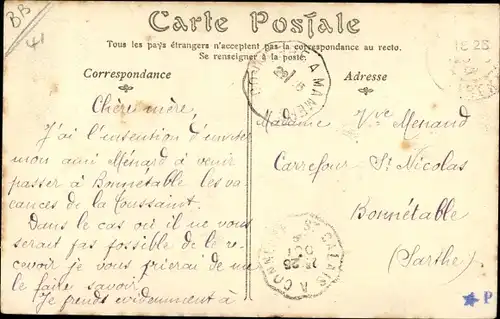 BB
41
Carte Postale
Tous les pays étrangers n'acceptent pas la correspondance au recto.
Se renseigner à la poste.
Correspondance
Adresse
Chère mère,
J'ai l'intention d'inviter
mon ami Ménard à venir
passer à Bonnétable les va-
cances de la Toussaint.
Dans le cas où il ne vous
serait pas possible de le re-
cevoir je vous prierai de me
le faire savoir
Je prends évidemment à
Madame Vve Menand
Carrefour St Nicolas
Bonnétable
(Sarthe)
A MAMERS
ST CALAIS A CONNERRÉ
18 25
P